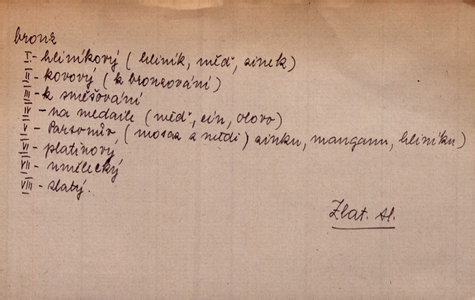 bronz
I - hliníkový (hliník, měď, zinek)
II - kovový (k bronzování)
III - k směšování
IV - na medaile (měď, cín, olovo)
V - Parsonův (mosaz z mědi) zinku, manganu, hliníku)
VI - platinový
VII - umělecký
VIII - zlatý.
Zlat. sl.